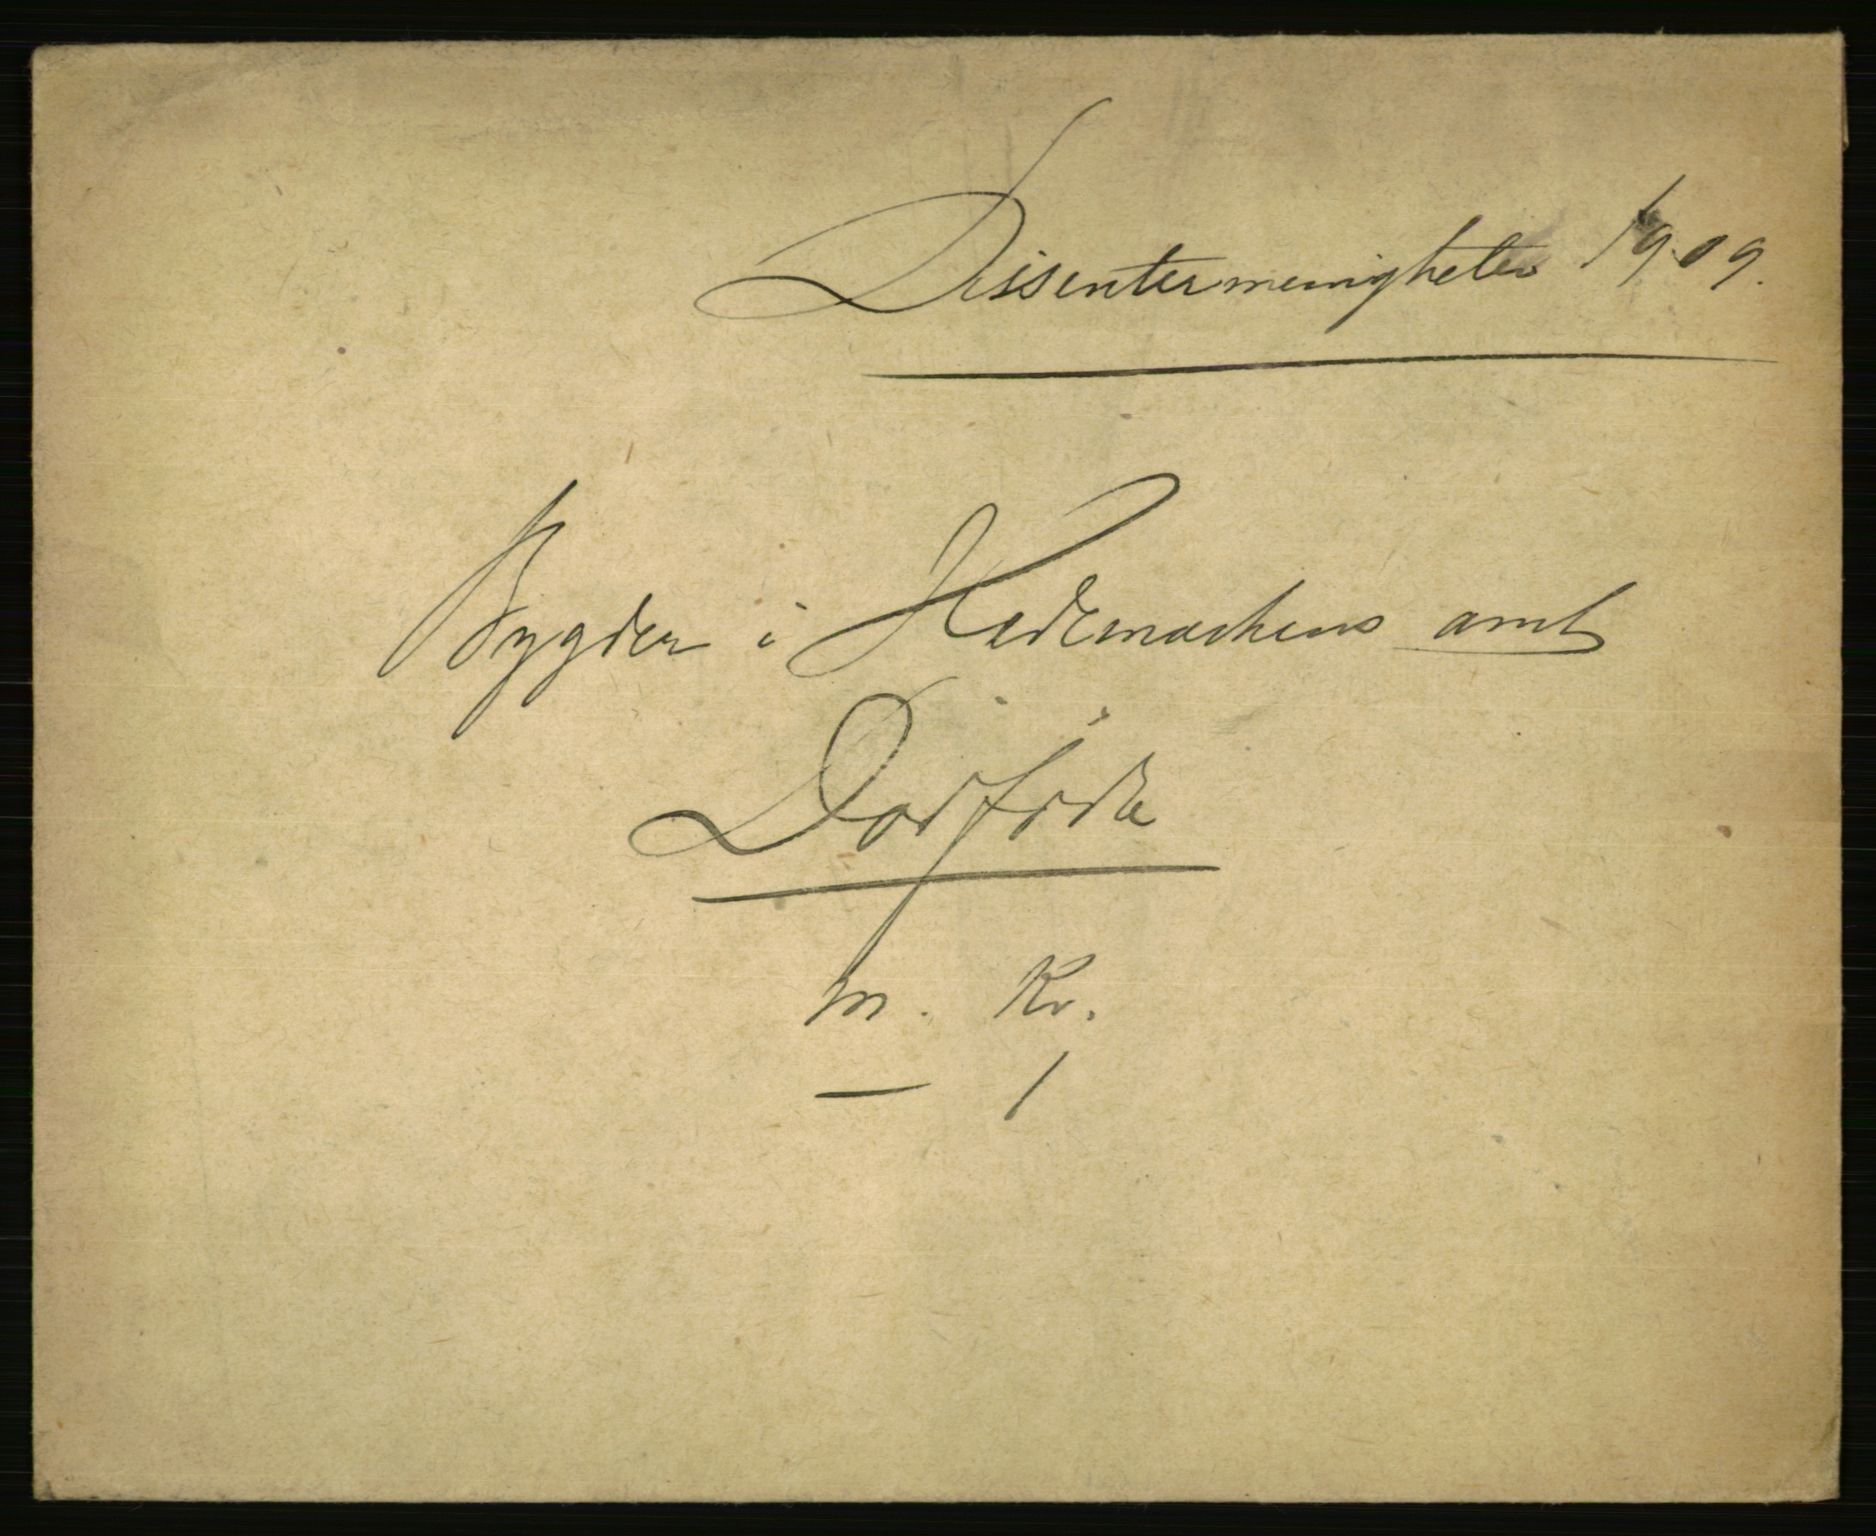 Dissentermenigheter 1909.
Bygder i Hedemarkens amt
Dødfødte
M. Kv.
— 1